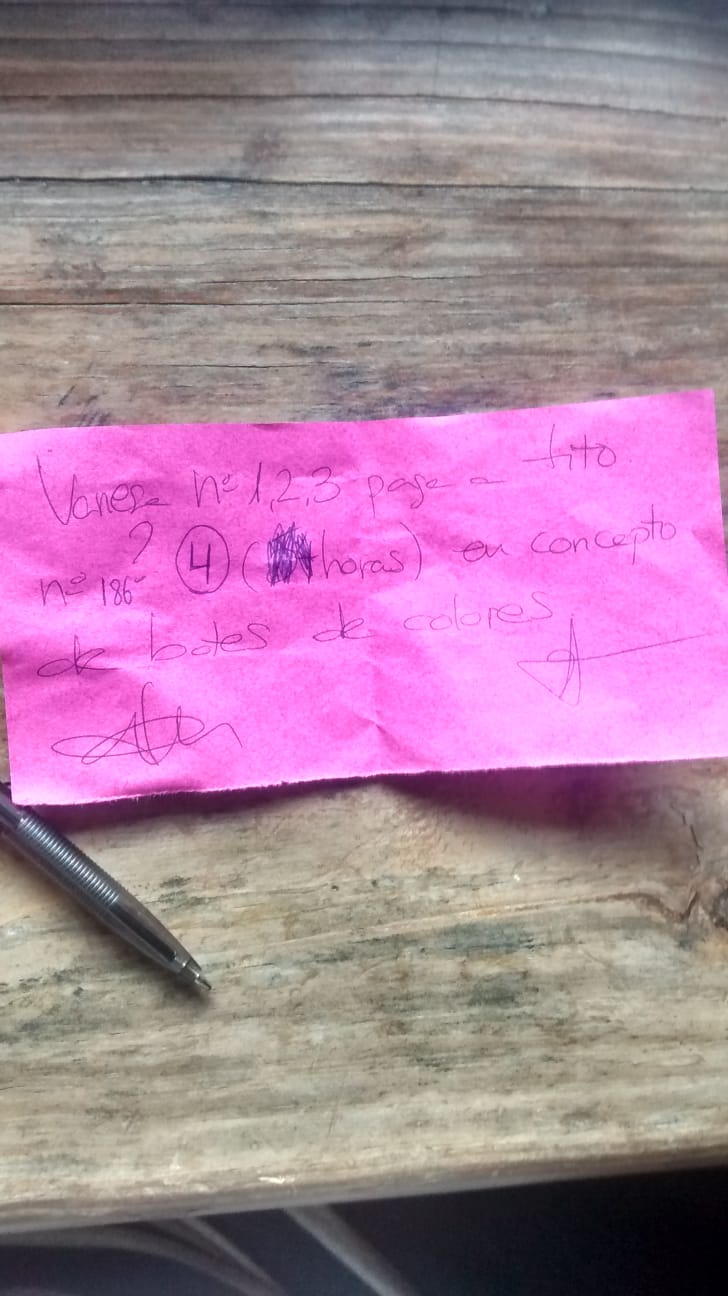 Vanesa nº 1,2,3 paga a tito
?
nº 186 4 (horas) en concepto
de botes de colores